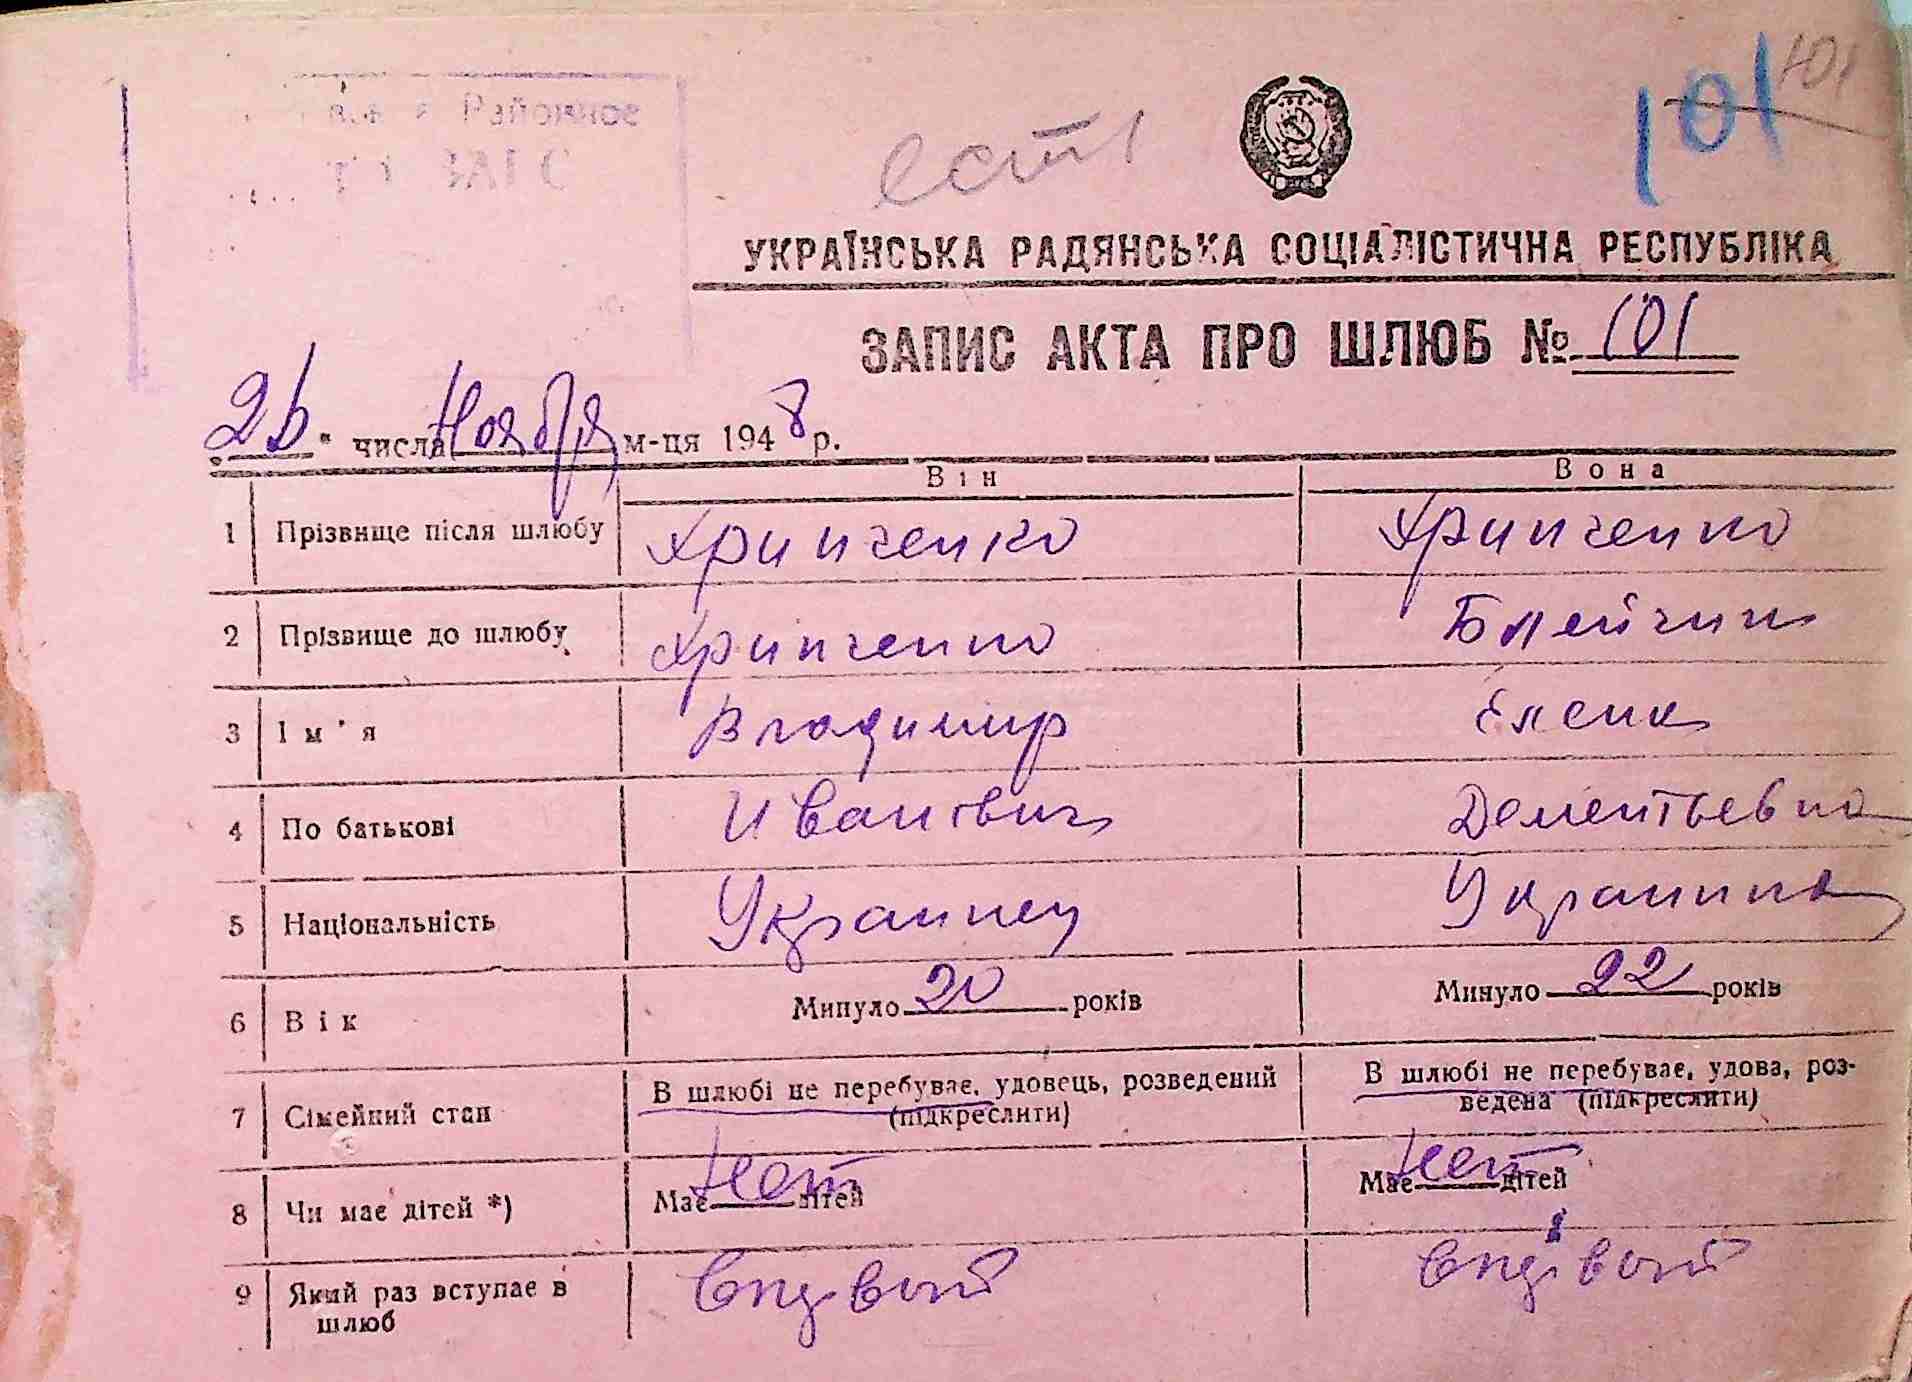 101
101
Районное
ЗАГС
есть
УКРАЇНСЬКА РАДЯНСЬКА СОЦІАЛІСТИЧНА РЕСПУБЛІКА
ЗАПИС АКТА ПРО ШЛЮБ № 101
26 " числа Ноября м-ця 1948 р.
Він Вона
1 Прізвище після шлюбу Хрипченко Хрипченко
2 Прізвище до шлюбу Хрипченко
3 Ім'я Владимир Елена
4 По батькові Иванович Дементьевна
5 Національність Украинец Украинка
6 Вік Минуло 20 років Минуло 22 років
7 Сімейний стан В шлюбі не перебуває, удовець, розведений (підкреслити) В шлюбі не перебуває, удова, роз-
ведена (підкреслити)
8 Чи має дітей *) Має Нет дітей Має Нет дітей
9 Який раз вступає в
шлюб